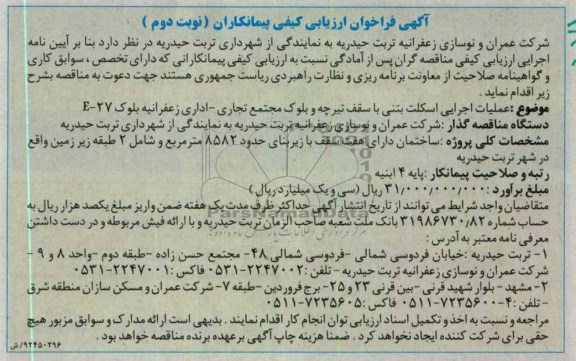 آگهی فراخوان ارزیابی کیفی پیمانکاران (نوبت دوم)
شرکت عمران و نوسازی زعفرانیه تربت حیدریه به نمایندگی از شهرداری تربت حیدریه در نظر دارد بنا بر آیین نامه
اجرایی ارزیابی کیفی مناقصه گران پس از آمادگی نسبت به ارزیابی کیفی پیمانکارانی که دارای تخصص، سوابق کاری
و گواهینامه صلاحیت از معاونت برنامه ریزی و نظارت راهبردی ریاست جمهوری هستند جهت دعوت به مناقصه بشرح
زیر اقدام نماید.
موضوع: عملیات اجرایی اسکلت بتنی با سقف تیرچه و بلوک مجتمع تجاری-اداری زعفرانیه بلوک E-27
دستگاه مناقصه گذار: شرکت عمران و نوسازی زعفرانیه تربت حیدریه به نمایندگی از شهرداری تربت حیدریه
مشخصات کلی پروژه: ساختمان دارای هفت سقف با زیربنای حدود ۸۵۸۲ مترمربع و شامل ۲ طبقه زیر زمین واقع
در شهر تربت حیدریه
رتبه و صلاحیت پیمانکار: پایه ۴ ابنیه
مبلغ برآورد: ۳۱/۰۰۰/۰۰۰/۰۰۰ ریال (سی و یک میلیارد ریال)
متقاضیان واجد شرایط می توانند از تاریخ انتشار آگهی حداکثر ظرف مدت یک هفته ضمن واریز مبلغ یکصد هزار ریال به
حساب شماره ۳۱۹۸۶۷۳۰/۸۲ بانک ملت شعبه صاحب الزمان تربت حیدریه و با ارائه فیش مربوطه و در دست داشتن
معرفی نامه معتبر به آدرس:
۱- تربت حیدریه: خیابان فردوسی شمالی -فردوسی شمالی ۴۸- مجتمع حسن زاده -طبقه دوم -واحد ۸ و ۹ -
شرکت عمران و نوسازی زعفرانیه تربت حیدریه - تلفن: ۲۲۴۷۰۰۲-۰۵۳۱ فاکس: ۲۲۴۷۰۰۱-۰۵۳۱
۲- مشهد - بلوار شهید قرنی -بین قرنی ۲۳ و ۲۵- برج فروردین -طبقه ۷- شرکت عمران و مسکن سازان منطقه شرق
- تلفن: ۴-۷۲۳۵۶۰۰-۰۵۱۱ فاکس: ۷۲۳۵۶۰۵-۰۵۱۱
مراجعه و نسبت به اخذ و تکمیل اسناد ارزیابی توان انجام کار اقدام نمایند. بدیهی است ارائه مدارک و سوابق مزبور هیچ
حقی برای شرکت کننده ایجاد نخواهد کرد. ضمنا هزینه چاپ آگهی برعهده برنده مناقصه خواهد بود.
۹۲۴۵۰۲۹۶/ش